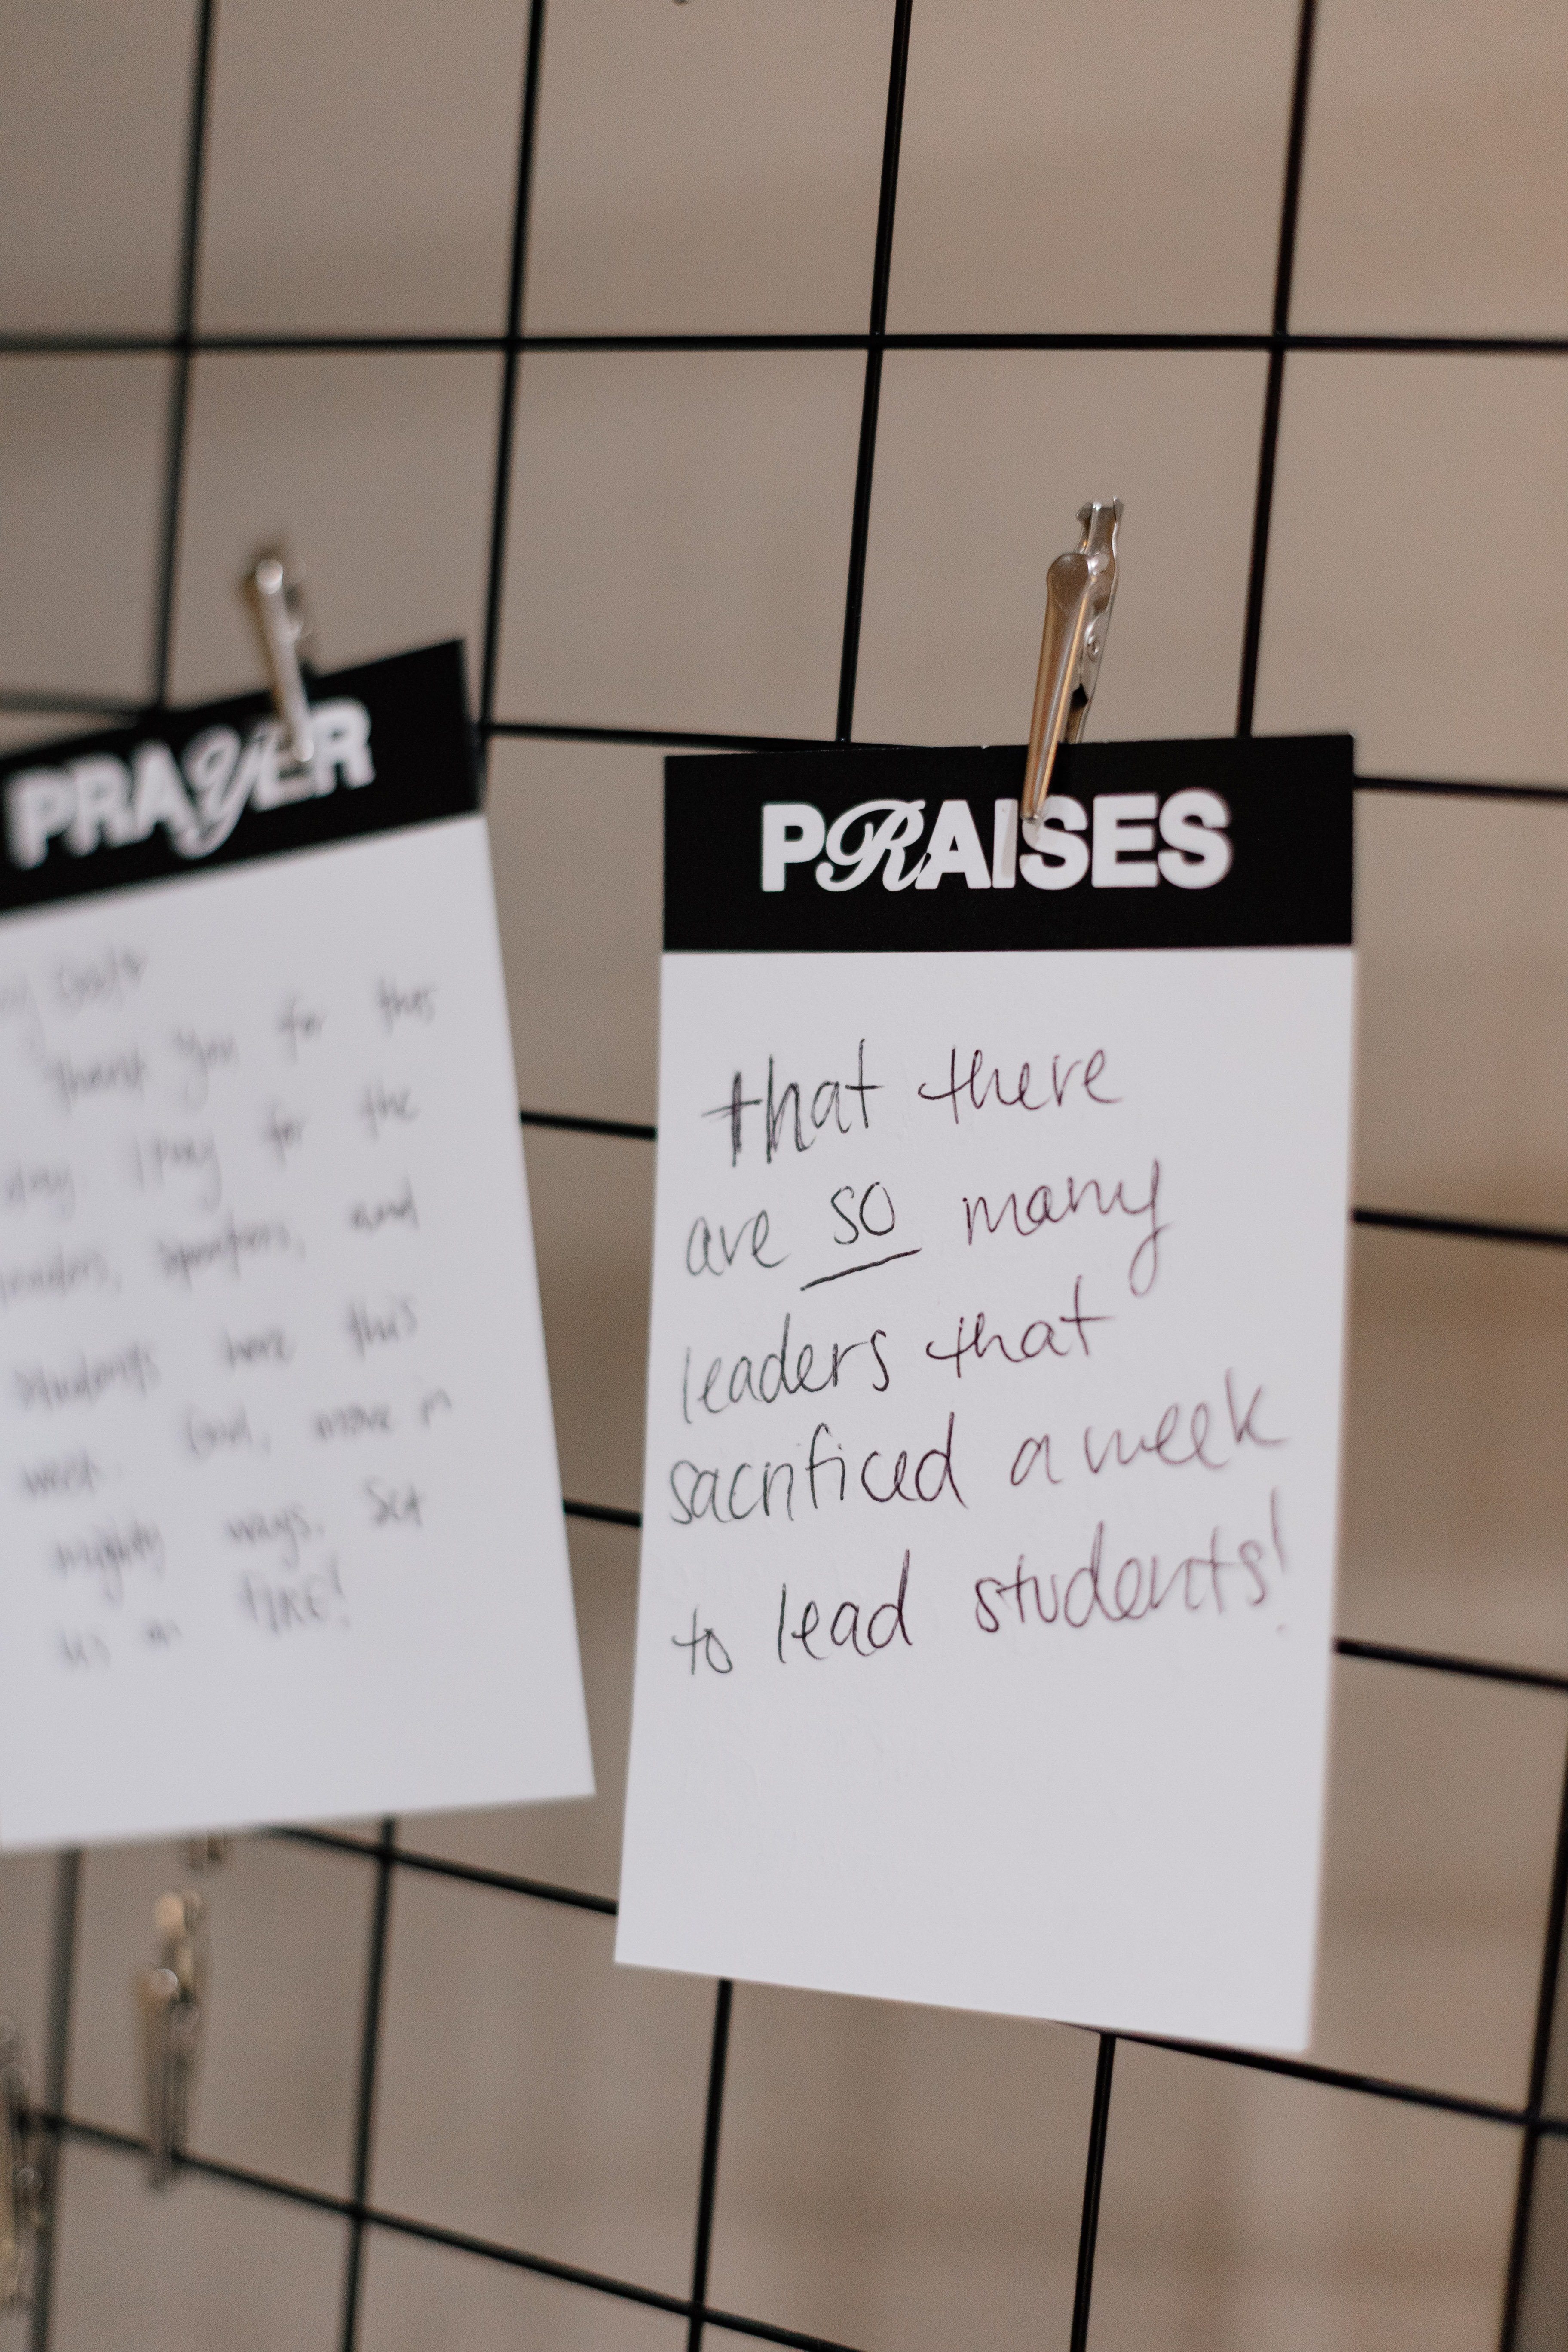 PRAYER
Thank you for this
day. I Pray for the
leaders, speakers, and
students here this
week. God, move in
mighty ways. Set
us on FIRE!
PRAISES
that there
are so many
leaders that
sacrificed a week
to lead students!